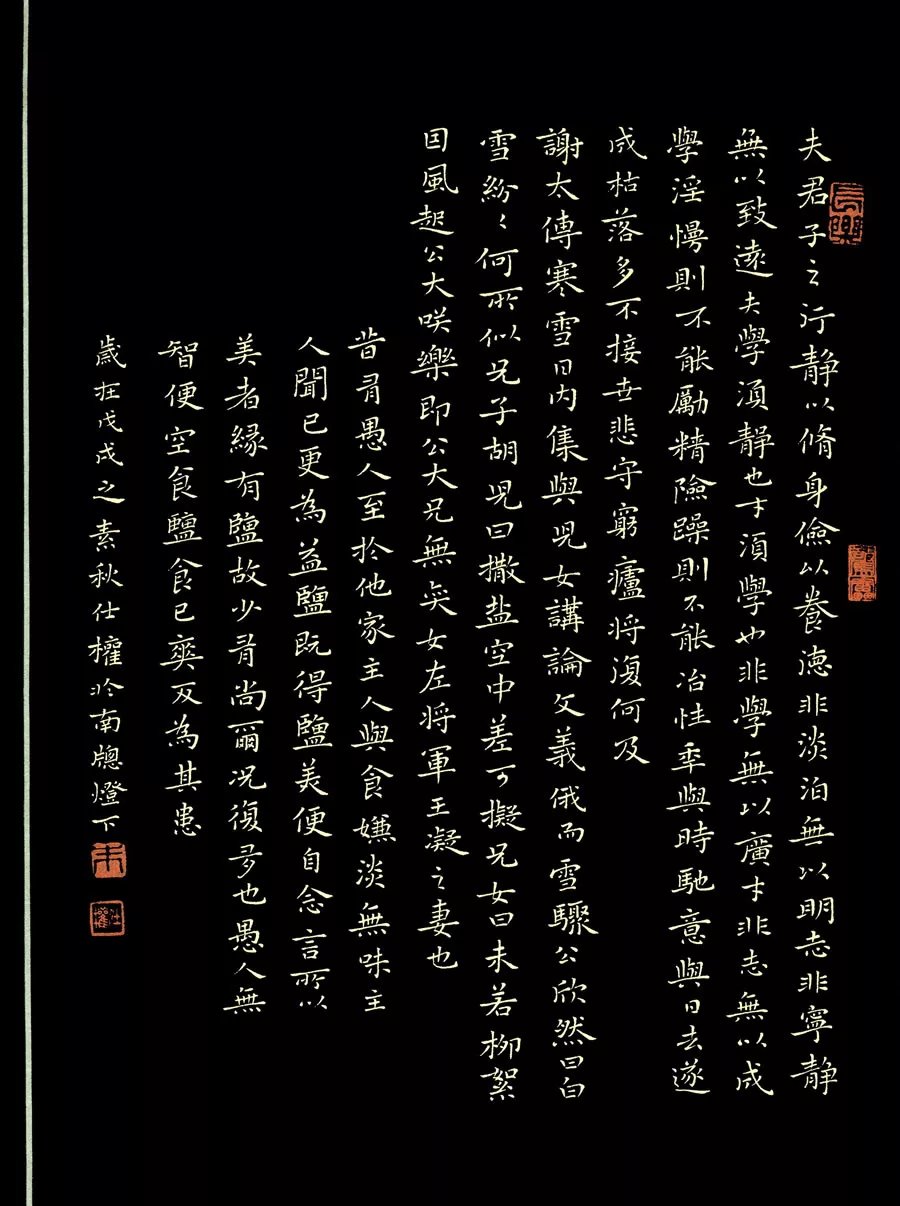 夫君子之行静以脩身儉以養德非淡泊無以明志非寧静
無以致遠夫學須静也才須學也非學無以廣才非志無以成
學淫慢則不能勵精險躁則不能冶性年與時馳意與日去遂
成枯落多不接世悲守窮廬将復何及
謝太傅寒雪日内集與児女講論文義俄而雪驟公欣然曰白
雪紛〻何所似兄子胡児曰撒盐空中差可擬兄女曰未若柳絮
因風起公大咲樂即公大兄無奕女左将軍王凝之妻也
昔有愚人至於他家主人與食嫌淡無味主
人聞已更為益鹽既得鹽美便自念言所以
美者緣有鹽故少有尚爾況復多也愚人無
智便空食鹽食已爽反為其患
歲在戊戌之素秋仕權於南牕燈下